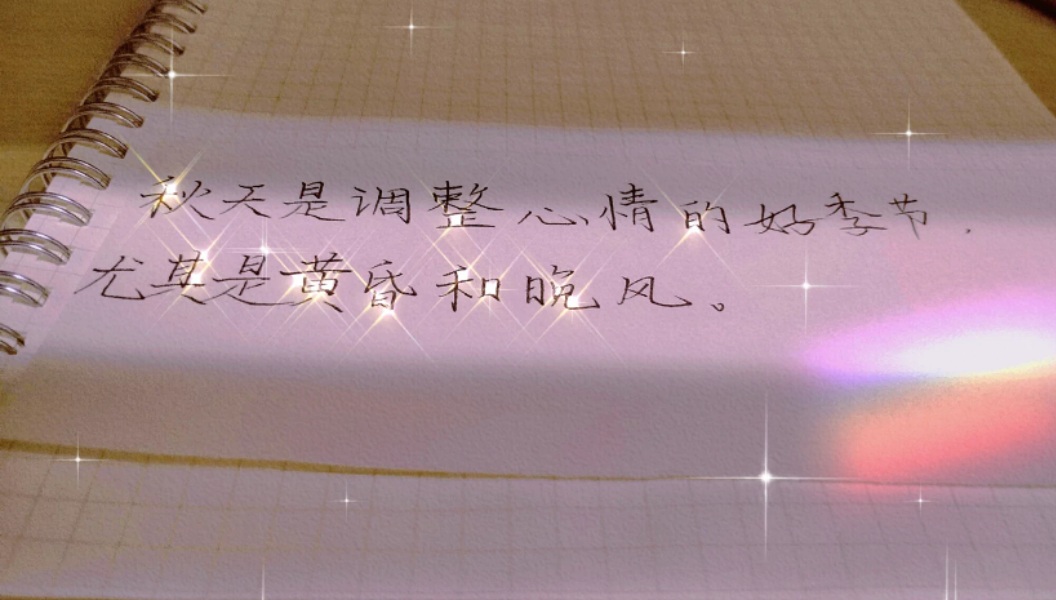 秋天是调整心情的好季节，
尤其是黄昏和晚风。